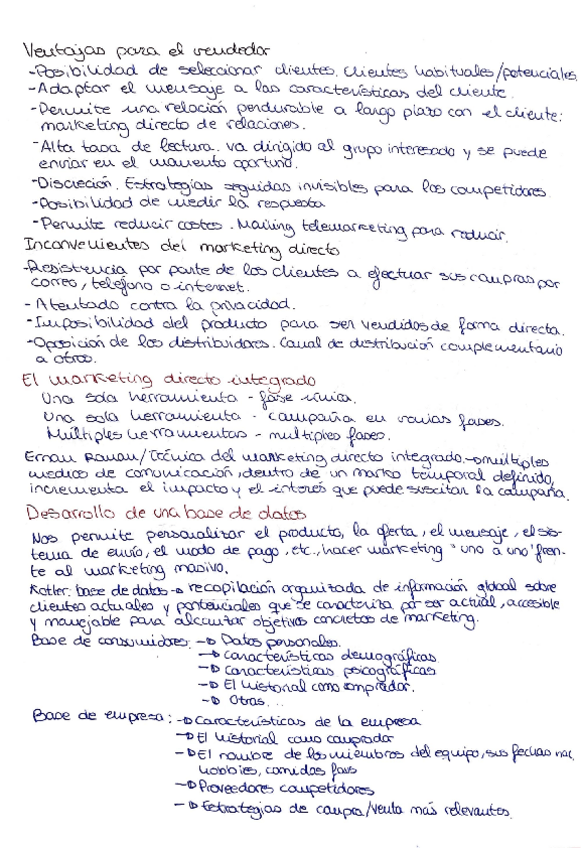 Ventajas para el vendedor
-Posibilidad de seleccionar clientes. Clientes habituales/potenciales.
-Adaptar el mensaje a las características del cliente.
-Permite una relación perdurable a largo plazo con el cliente:
marketing directo de relaciones.
-Alta tasa de lectura. va dirigido al grupo interesado y se puede
enviar en el momento oportuno.
-Discreción. Estrategias seguidas invisibles para los competidores.
-Posibilidad de medir la respuesta
-Permite reducir costes. Mailing telemarketing para reducir.
Inconvenientes del marketing directo
-Resistencia por parte de los clientes a efectuar sus compras por
correo, telefono o internet.
-Atentado contra la privacidad.
-Imposibilidad del producto para ser vendidos de forma directa.
-Oposición de los distribuidores. Canal de distribución complementario
a otros.
El marketing directo integrado
Una sola herramienta - fase única.
Una sola herramienta - campaña en varias fases.
Múltiples herramientas - multiples fases.
Ernan Roman/técnica del marketing directo integrado→multiples
medios de comunicación, dentro de un marko temporal definido,
incrementa el impacto y el interés que puede suscitar la campaña.
Desarrollo de una base de datos
Nos permite personalizar el producto, la oferta, el mensaje, el sis-
tema de envío, el modo de pago, etc., hacer marketing "uno a uno" fren-
te al marketing masivo.
Kotler: base de datos→ recopilación organizada de información global sobre
clientes actuales y pontenciales que se caracteriza por ser actual, accesible
y manejable para alcanzar objetivos concretos de marketing.
Base de consumidores: → Datos personales.
→ características demográficas
→ características psicográficas
→ El historial como comprador.
→ Otras...
Base de empresa: → Características de la empresa
→ El historial como comprador
→ El nombre de los miembros del equipo, sus fechas nac,
hobbies, comidas favs
→ Proveedores competidores
→ Estrategias de compra/venta más relevantes.